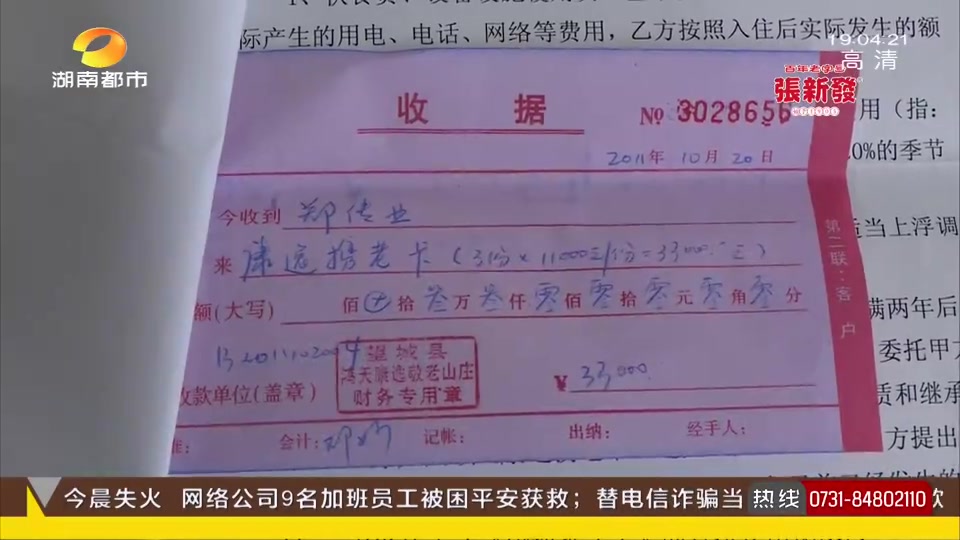 际产生的用电、电话、网络等费用，乙方按照入住后实际发生的额
湖南都市
19:04:21
高清
百年老字号
張新發
收 据
№ 3028656
用（指：
2011年 10月 20日
0%的季节
今收到 郑传业
来 康逸揹老卡（3份×11000元/份=33000.元）
适当上浮调
第二联：客户
额(大写) 佰⊕拾叁万叁仟零佰零拾零元零角零分
满两年后
B2011102004
望城县
鸿天康逸敬老山庄
财务专用章
委托甲方
收款单位(盖章)
¥ 33000.
责和继承
会计：邓 记帐： 出纳： 经手人：
方提出
今晨失火 网络公司9名加班员工被困平安获救；替电信诈骗当
热线 0731-84802110
款